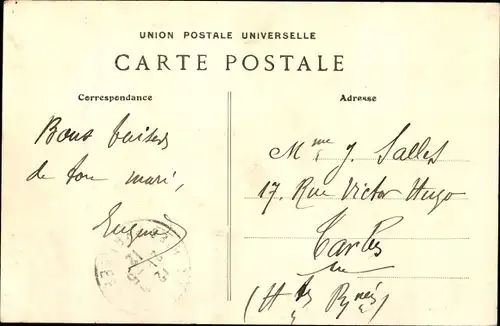 UNION POSTALE UNIVERSELLE
CARTE POSTALE
Correspondance
Adresse
Bons baisers
de ton mari,
Eugène
Mme J. Salles
17, Rue Victor Hugo
Tarbes
(Htes Pynées)